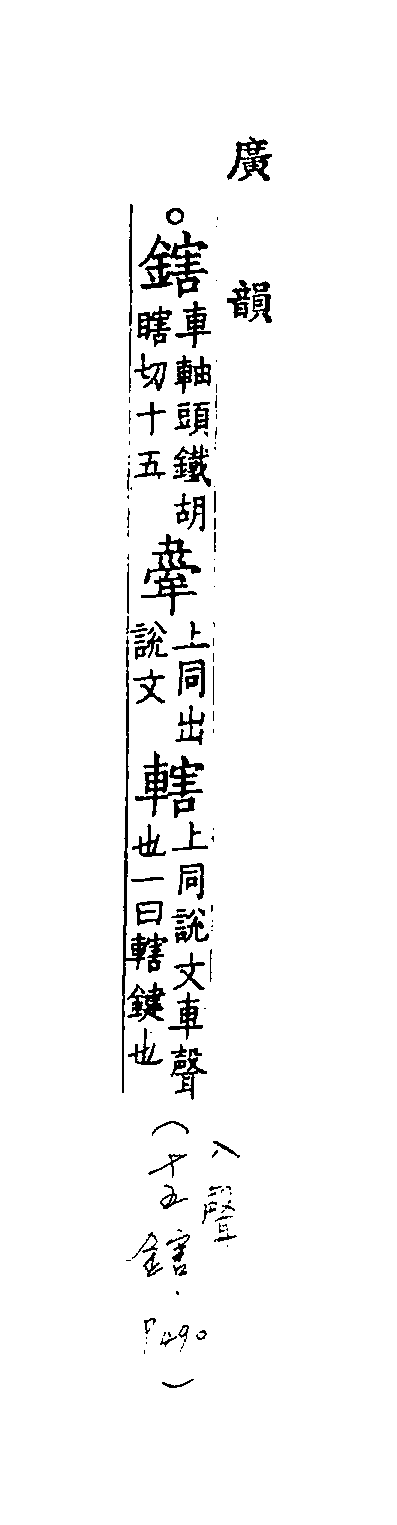 廣韻
○鎋車軸頭鐵胡瞎切十五舝上同出說文轄上同說文車聲也一曰轄鍵也
入聲
（十五鎋．P490）